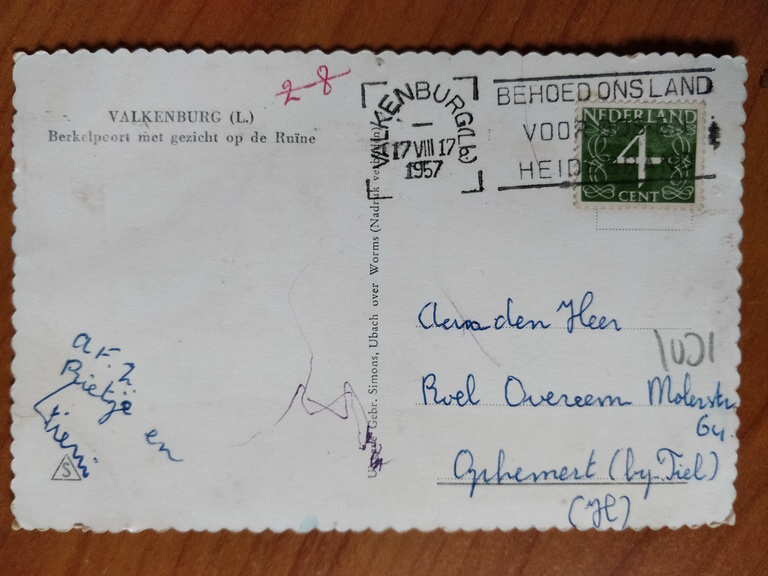 VALKENBURG (L.)
Berkelpoort met gezicht op de Ruïne
2-8
VALKENBURG (Lb)
17 VIII 17
1957
BEHOED ONS LAND
VOOR
HEID
NEDERLAND
4
CENT
Gebr. Simons, Ubach over Worms (Nadruk verboden)
Aan den Heer
Roel Overeem Molenstr.
64.
Ophemert (by Tiel)
af. z.
Rietje
en
S